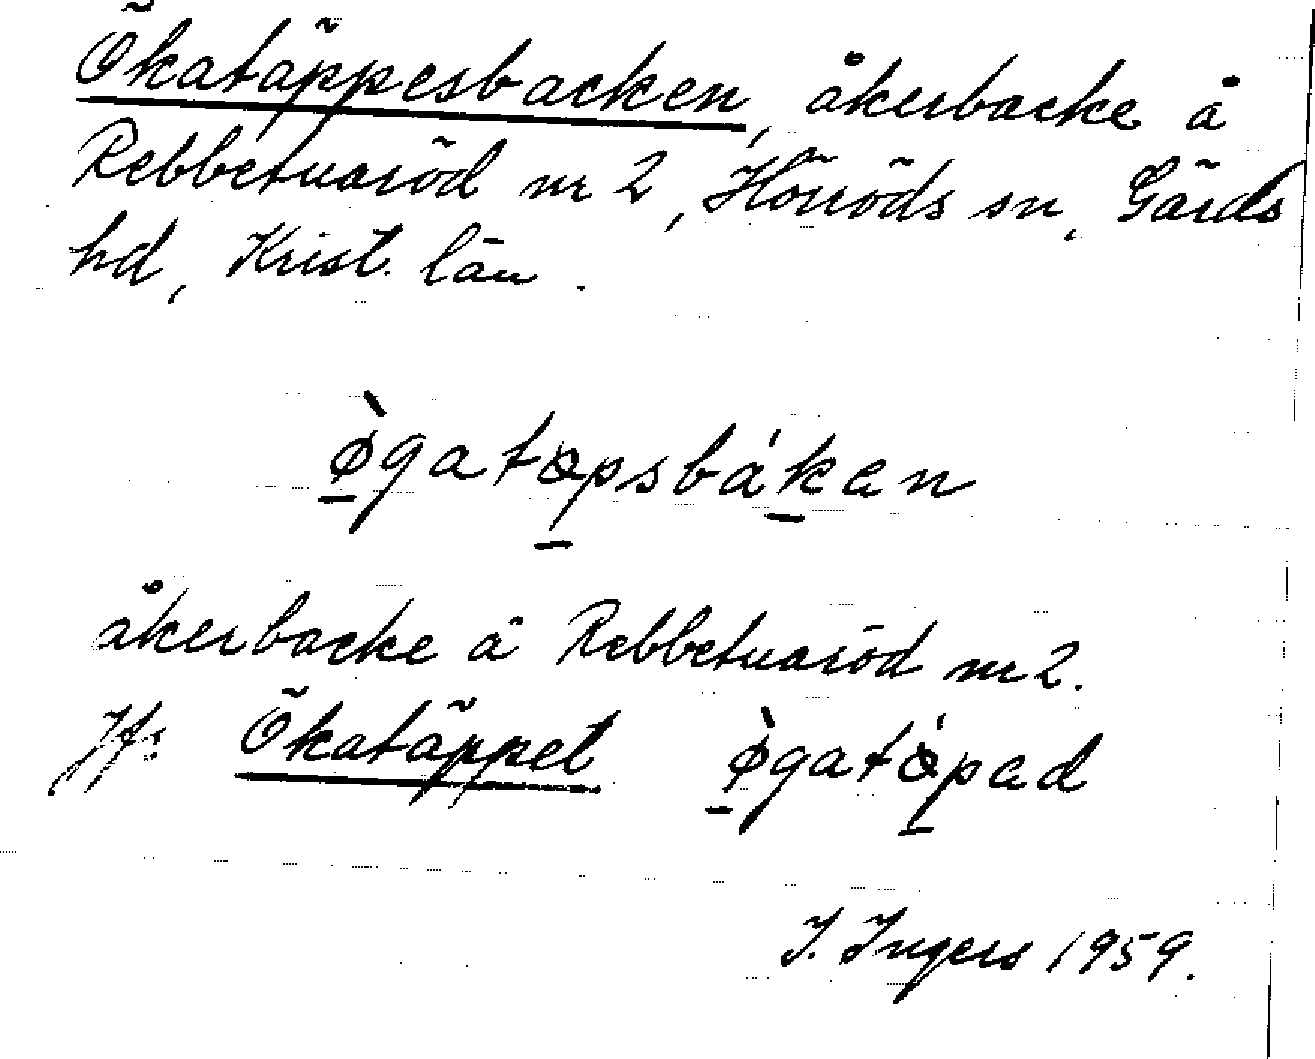 Ökatäppesbacken, åkerbacke å
Rebbetuaröd nr 2, Hörröds sn, Gärds
hd, Krist. län.
ø̀gatæpsbákan
åkerbacke å Rebbetuaröd nr 2.
Jfr Ökatäppet ø̀gatæ̀pad
I. Ingers 1959.